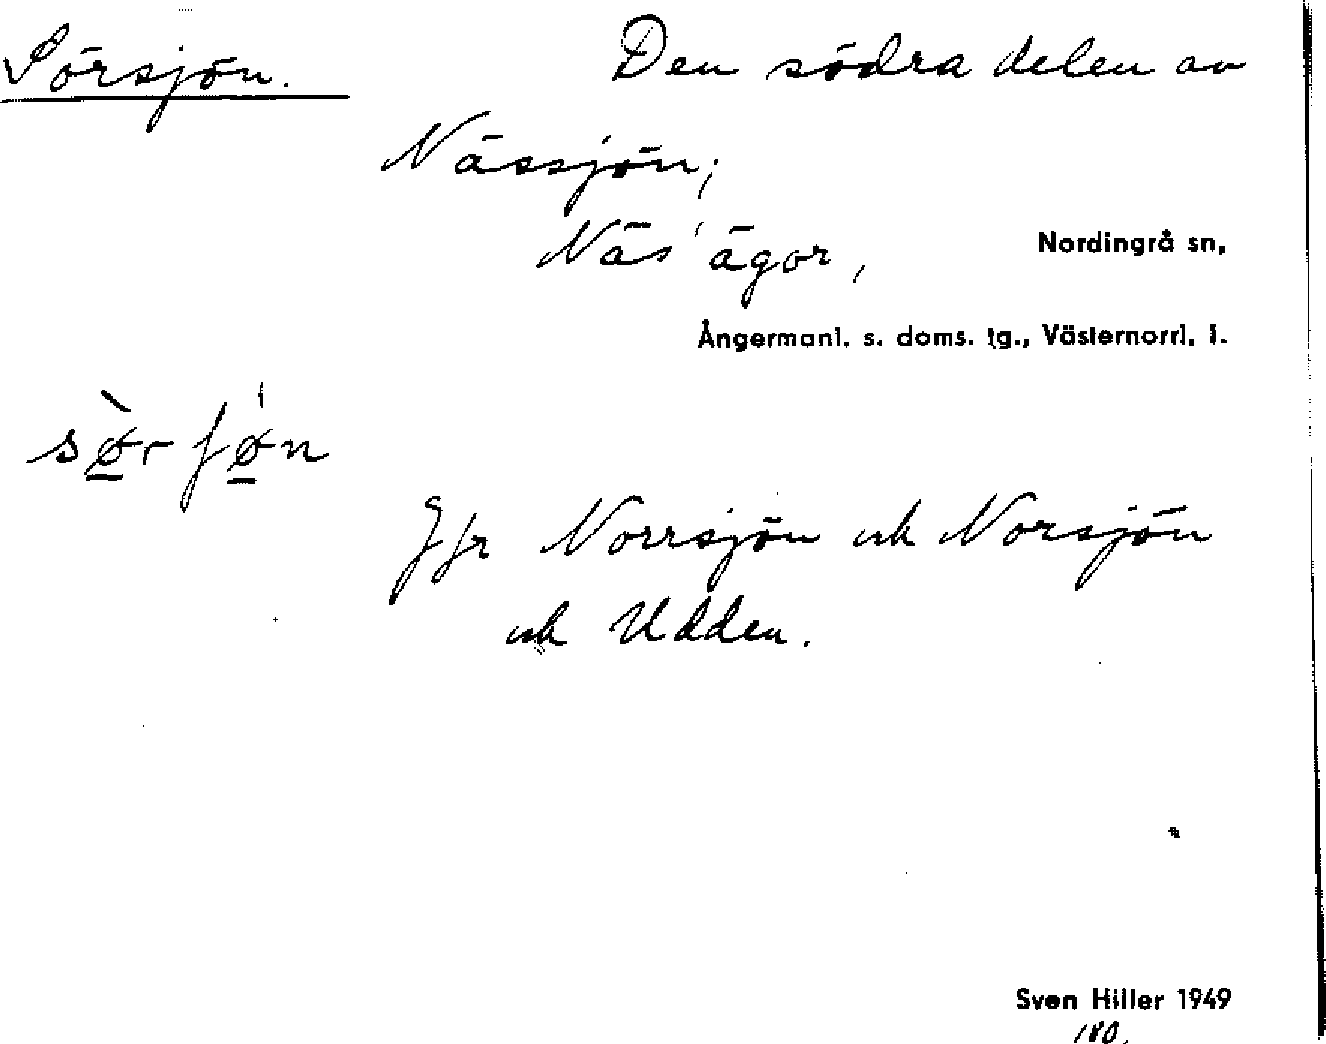 Sörsjön. Den södra delen av
Nässjön;
Näs' ägor, Nordingrå sn,
Ångermanl. s. doms. tg., Västernorrl. l.
sø̠̀rʃǿ̠n
Jfr Norrsjön och Norsjön
och Udden.
Sven Hiller 1949
180.